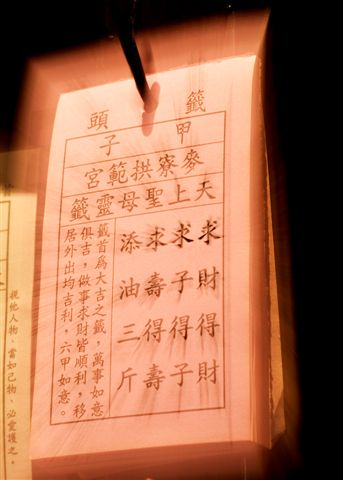 籤頭
甲子
麥寮拱範宮
天上聖母靈籤
求財得財
求子得子
求壽得壽
添油三斤
籤首爲大吉之籤，萬事如意
俱吉，做事求財皆順利，移
居外出均吉利，六甲如意。
視他人物、當如己物、必愛護之。